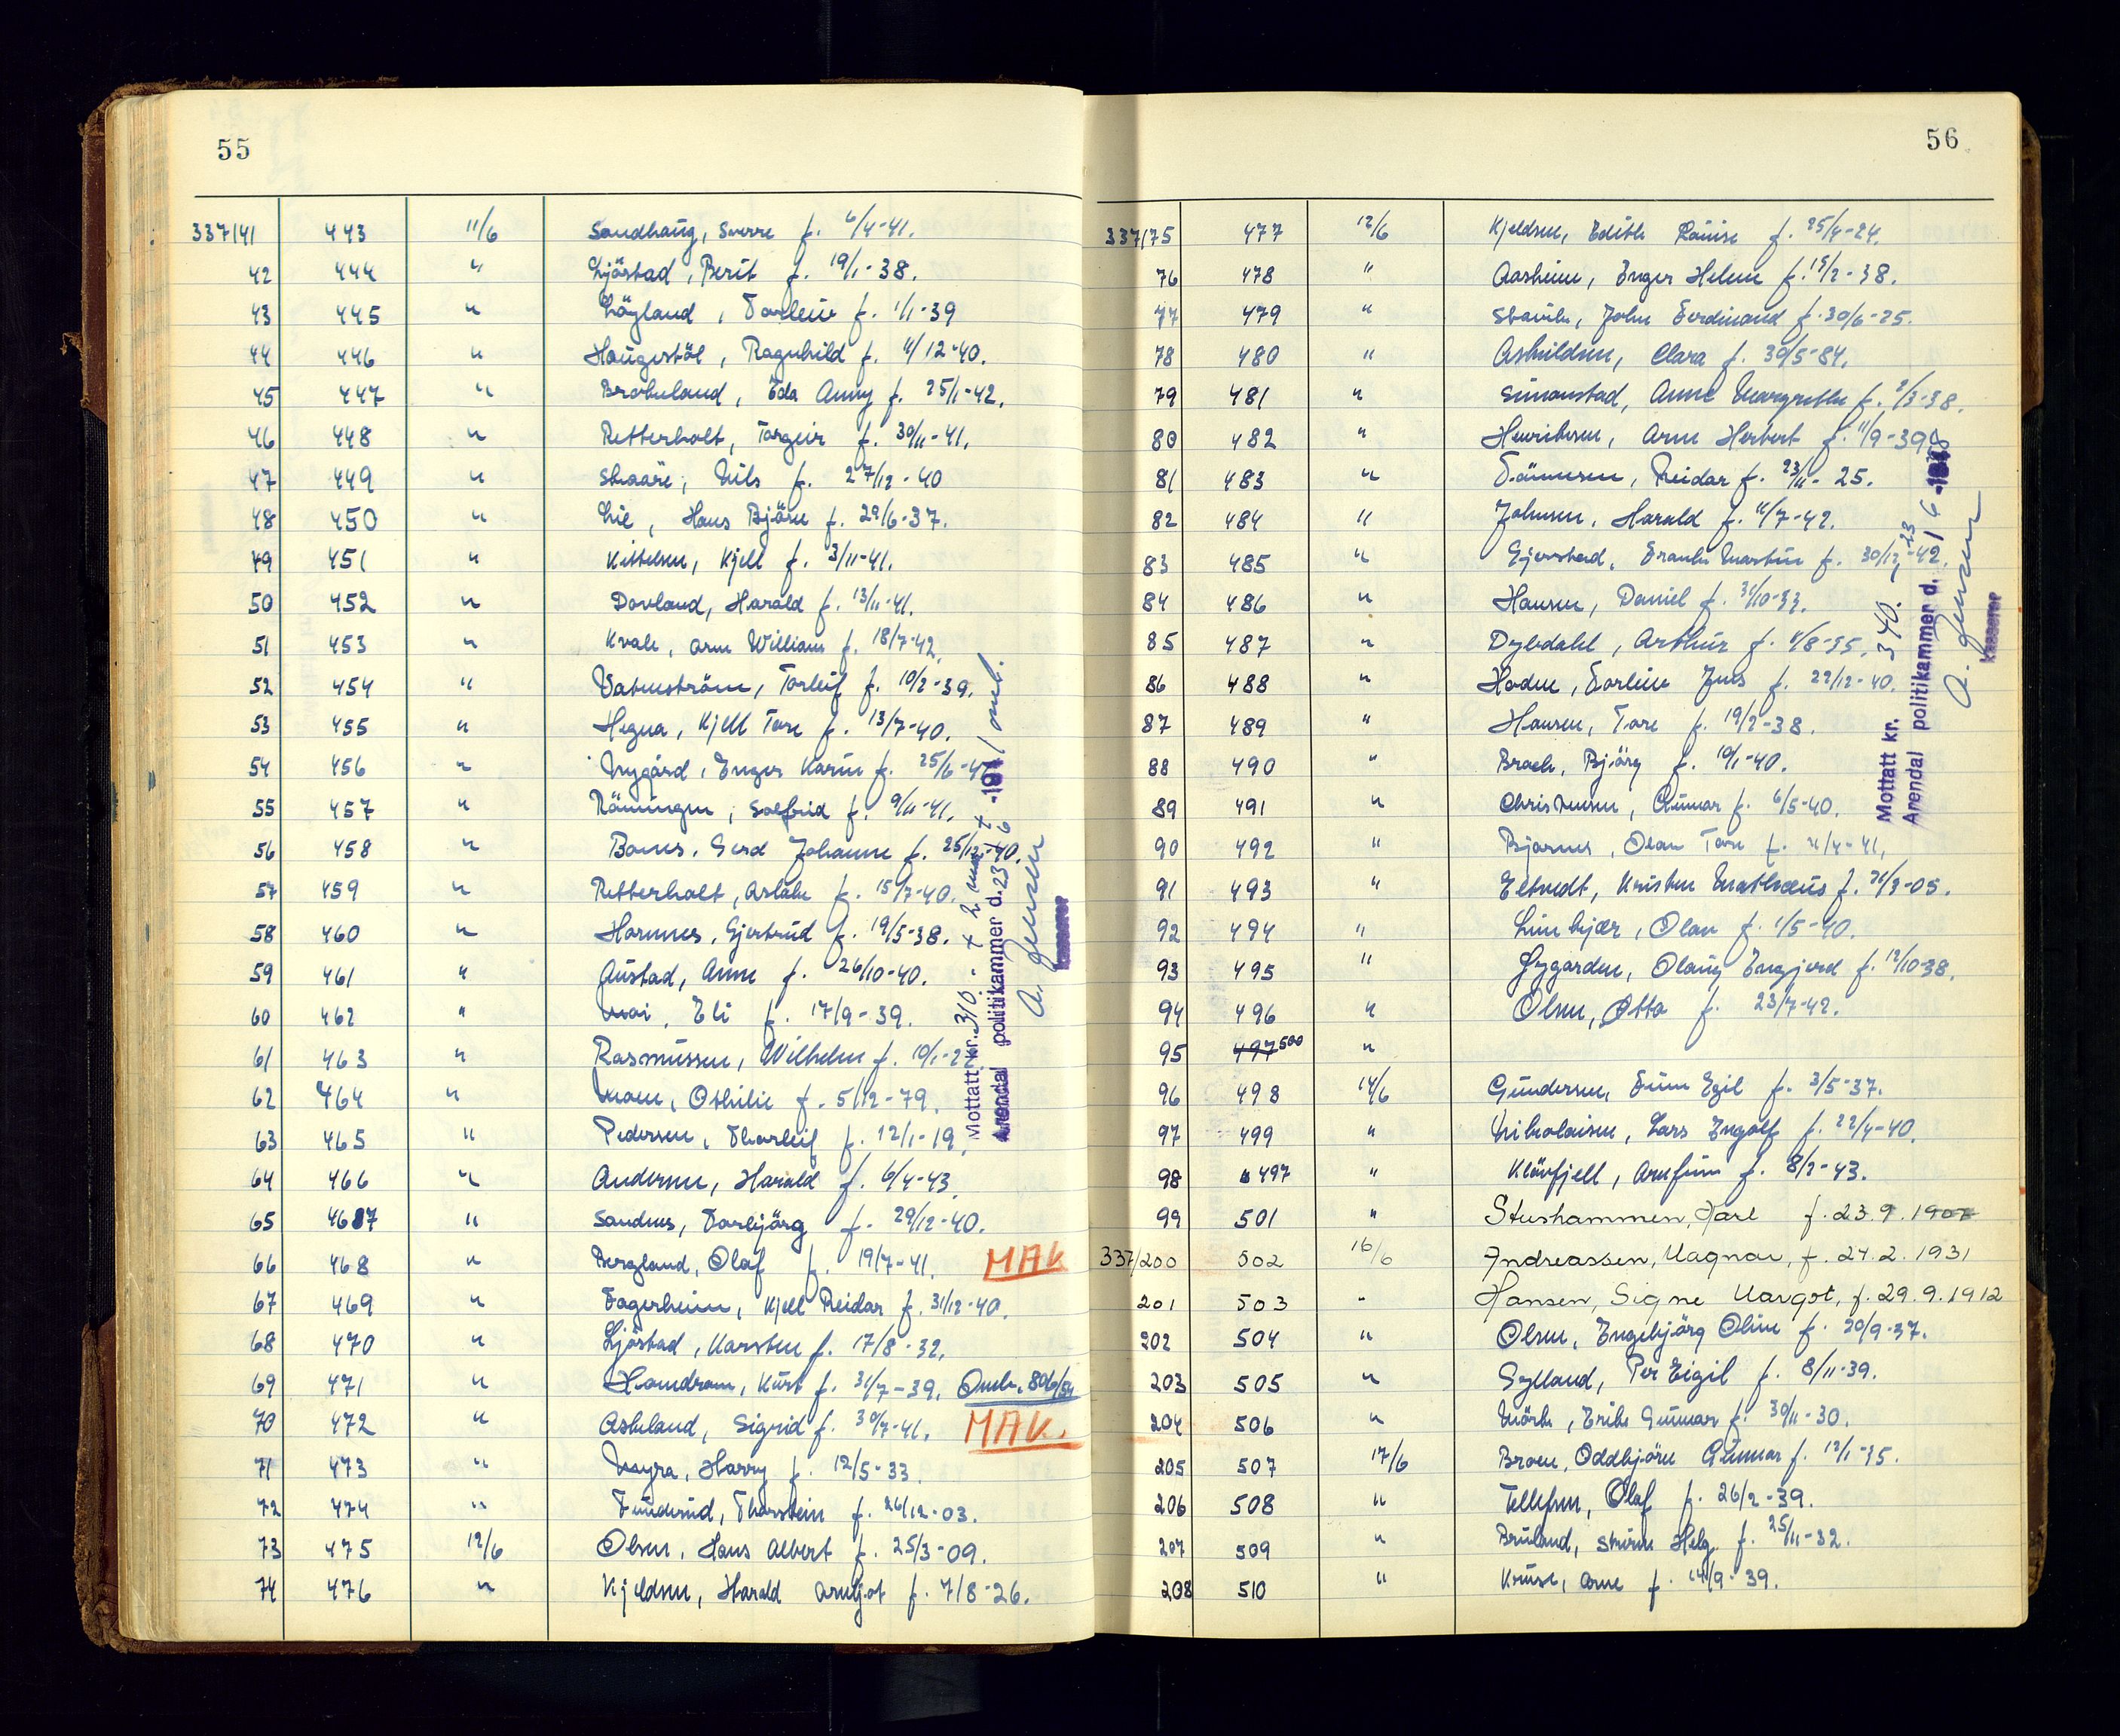 55
337/41 443 11/6 Sandhaug, Sverre f. 6/4-41.
42 444 " Ljöstad, Berit f. 19/1-38.
43 445 " Löyland, Torleiv f. 1/1-39
44 446 " Haugestöl, Ragnhild f. 4/12-40.
45 447 " Brokeland, Eda Anny f. 25/1-42.
46 448 " Retterholt, Torgeir f. 30/11-41.
47 449 " Skaare, Nils f. 27/12-40
48 450 " Lie, Hans Björn f. 29/6-37.
49 451 " Kittelsen, Kjell f. 3/11-41.
50 452 " Dovland, Harald f. 13/11-41.
51 453 " Kvale, Arne William f. 18/7-42.
52 454 " Vatneström, Torleif f. 10/2-39.
53 455 " Hegna, Kjell Tore f. 13/7-40.
54 456 " Nygård, Inger Karin f. 25/6-
55 457 " Röiningen, Solfrid f. 9/11-41.
56 458 " Bomes, Gerd Johanne f. 25/12-40.
57 459 " Retterholt, Aslak f. 15/7-40.
58 460 " Hommes, Gjertrud f. 19/5-38.
59 461 " Austad, Anne f. 26/10-40.
60 462 " Moi, Eli f. 17/9-39.
61 463 " Rasmussen, Wilhelm f. 10/1-2
62 464 " Moen, Othilie f. 5/12-79.
63 465 " Pedersen, Thorleif f. 12/1-19.
64 466 " Andersen, Harald f. 6/4-43.
65 467 " Sandnes, Torbjörg f. 29/12-40.
66 468 " Bergland, Olaf f. 19/7-41. MAK
67 469 " Fagerheim, Kjell Reidar f. 31/12-40.
68 470 " Ljöstad, Karsten f. 17/8-32.
69 471 " Homdrom, Kurt f. 31/7-39. Omb. 806/54
70 472 " Askeland, Sigrid f. 30/7-41. MAK.
71 473 " Myra, Harry f. 12/5-33.
72 474 " Finderud, Thorstein f. 26/12-03.
73 475 12/6 Olsen, Hans Albert f. 25/3-09.
74 476 " Kjeldsen, Harald Arnljot f. 7/8-26.
Mottatt kr. 310.- + 2 + 1 omb.
Arendal politikammer d. 23/6 -19
A. Jensen
kasserer
56
337/75 477 12/6 Kjeldsen, Edith Louise f. 25/4-24.
76 478 " Aasheim, Inger Helene f. 15/2-38.
77 479 " Skavik, John Ferdinand f. 30/6-25.
78 480 " Askildsen, Clara f. 30/5-84.
79 481 " Simonstad, Anne Margrethe f. 9/3-38.
80 482 " Henriksen, Arne Herbert f. 11/9-39
81 483 " Tönnesen, Reidar f. 23/11-25.
82 484 " Johnsen, Harald f. 4/7-42.
83 485 " Gjerstad, Frank Martin f. 30/12-42.
84 486 " Hansen, Daniel f. 31/10-33.
85 487 " Dybdahl, Arthur f. 4/8-35.
86 488 " Hoden, Torleiv Jens f. 22/12-40.
87 489 " Hansen, Tore f. 19/2-38.
88 490 " Braek, Björg f. 10/1-40.
89 491 " Christensen, Gunnar f. 6/5-40.
90 492 " Bjornes, Olav Tore f. 4/4-41.
91 493 " Eltvedt, Kristen Mathæus f. 31/3-05.
92 494 " Linekjær, Olav f. 1/5-40.
93 495 " Öygarden, Olaug Engjerd f. 12/10-38.
94 496 " Olsen, Otto f. 23/7-42.
95 497 500 "
96 498 14/6 Gundersen, Finn Egil f. 3/5-37.
97 499 " Nikolaisen, Lars Ingolf f. 22/4-40.
98 497 " Klövfjell, Arnfinn f. 8/2-43.
99 501 " Stushammen, Karl f. 23.9.1907
337/200 502 16/6 Andreassen, Magnar, f. 24.2.1931
201 503 " Hansen, Signe Margot, f. 29.9.1912
202 504 " Olsen, Engebjörg Oline f. 20/9-37.
203 505 " Sylland, Per Eigil f. 8/11-39.
204 506 " Mörk, Erik Gunnar f. 30/11-30.
205 507 17/6 Broen, Oddbjörn Gunnar f. 12/1-35.
206 508 " Tellefsen, Olaf f. 26/2-39.
207 509 " Bruland, Helg. f. 25/11-32.
208 510 " Kruse, Arne f. 14/9-39.
Mottatt kr. 340.-
Arendal politikammer d. 23/6 -1958
A. Jensen
kasserer